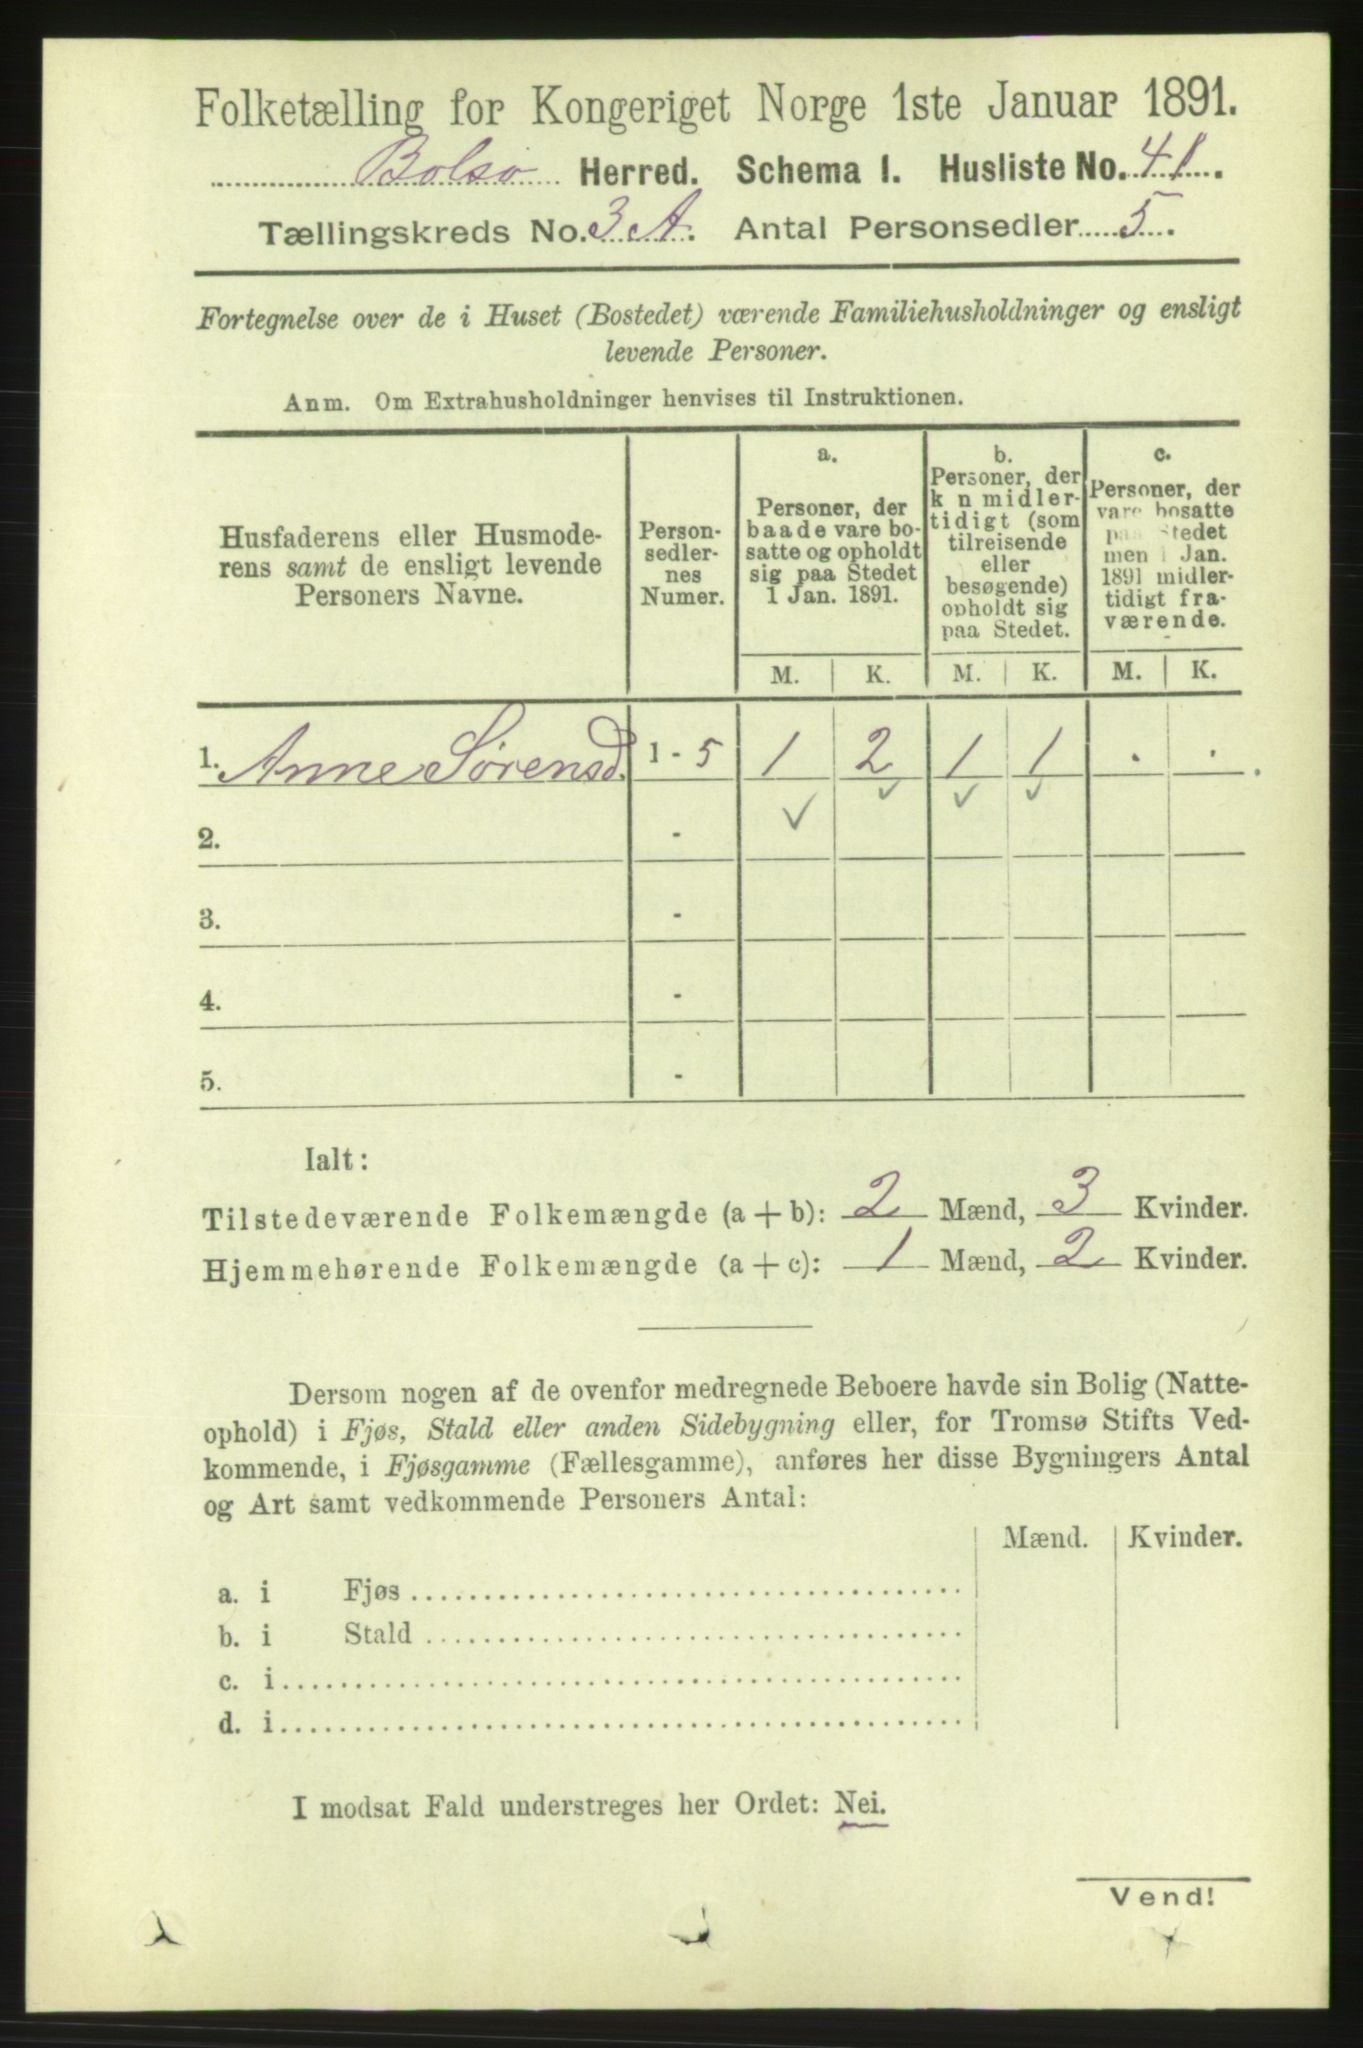 Folketælling for Kongeriget Norge 1ste Januar 1891.
Bolsø Herred. Schema I. Husliste No. 41.
Tællingskreds No. 3 A. Antal Personsedler 5.
Fortegnelse over de i Huset (Bostedet) værende Familiehusholdninger og ensligt
levende Personer.
Anm. Om Extrahusholdninger henvises til Instruktionen.
Husfaderens eller Husmode-
rens samt de ensligt levende
Personers Navne.
Person-
sedler-
nes
Numer.
a.
Personer, der
baade vare bo-
satte og opholdt
sig paa Stedet
1 Jan. 1891.
b.
Personer, der
k n midler-
tidigt (som
tilreisende
eller
besøgende)
opholdt sig
paa Stedet.
c.
Personer, der
vare bosatte
paa Stedet
men 1 Jan.
1891 midler-
tidigt fra-
værende.
M. K. M. K. M. K.
1. Anne Sørensd. 1 - 5 1 2 1 1 . .
2. -
3. -
4. -
5. -
Ialt:
Tilstedeværende Folkemængde (a + b): 2 Mænd, 3 Kvinder.
Hjemmehørende Folkemængde (a + c): 1 Mænd, 2 Kvinder.
Dersom nogen af de ovenfor medregnede Beboere havde sin Bolig (Natte-
ophold) i Fjøs, Stald eller anden Sidebygning eller, for Tromsø Stifts Ved-
kommende, i Fjøsgamme (Fællesgamme), anføres her disse Bygningers Antal
og Art samt vedkommende Personers Antal:
Mænd. Kvinder.
a. i Fjøs
b. i Stald
c. i
d. i
I modsat Fald understreges her Ordet: Nei.
Vend!